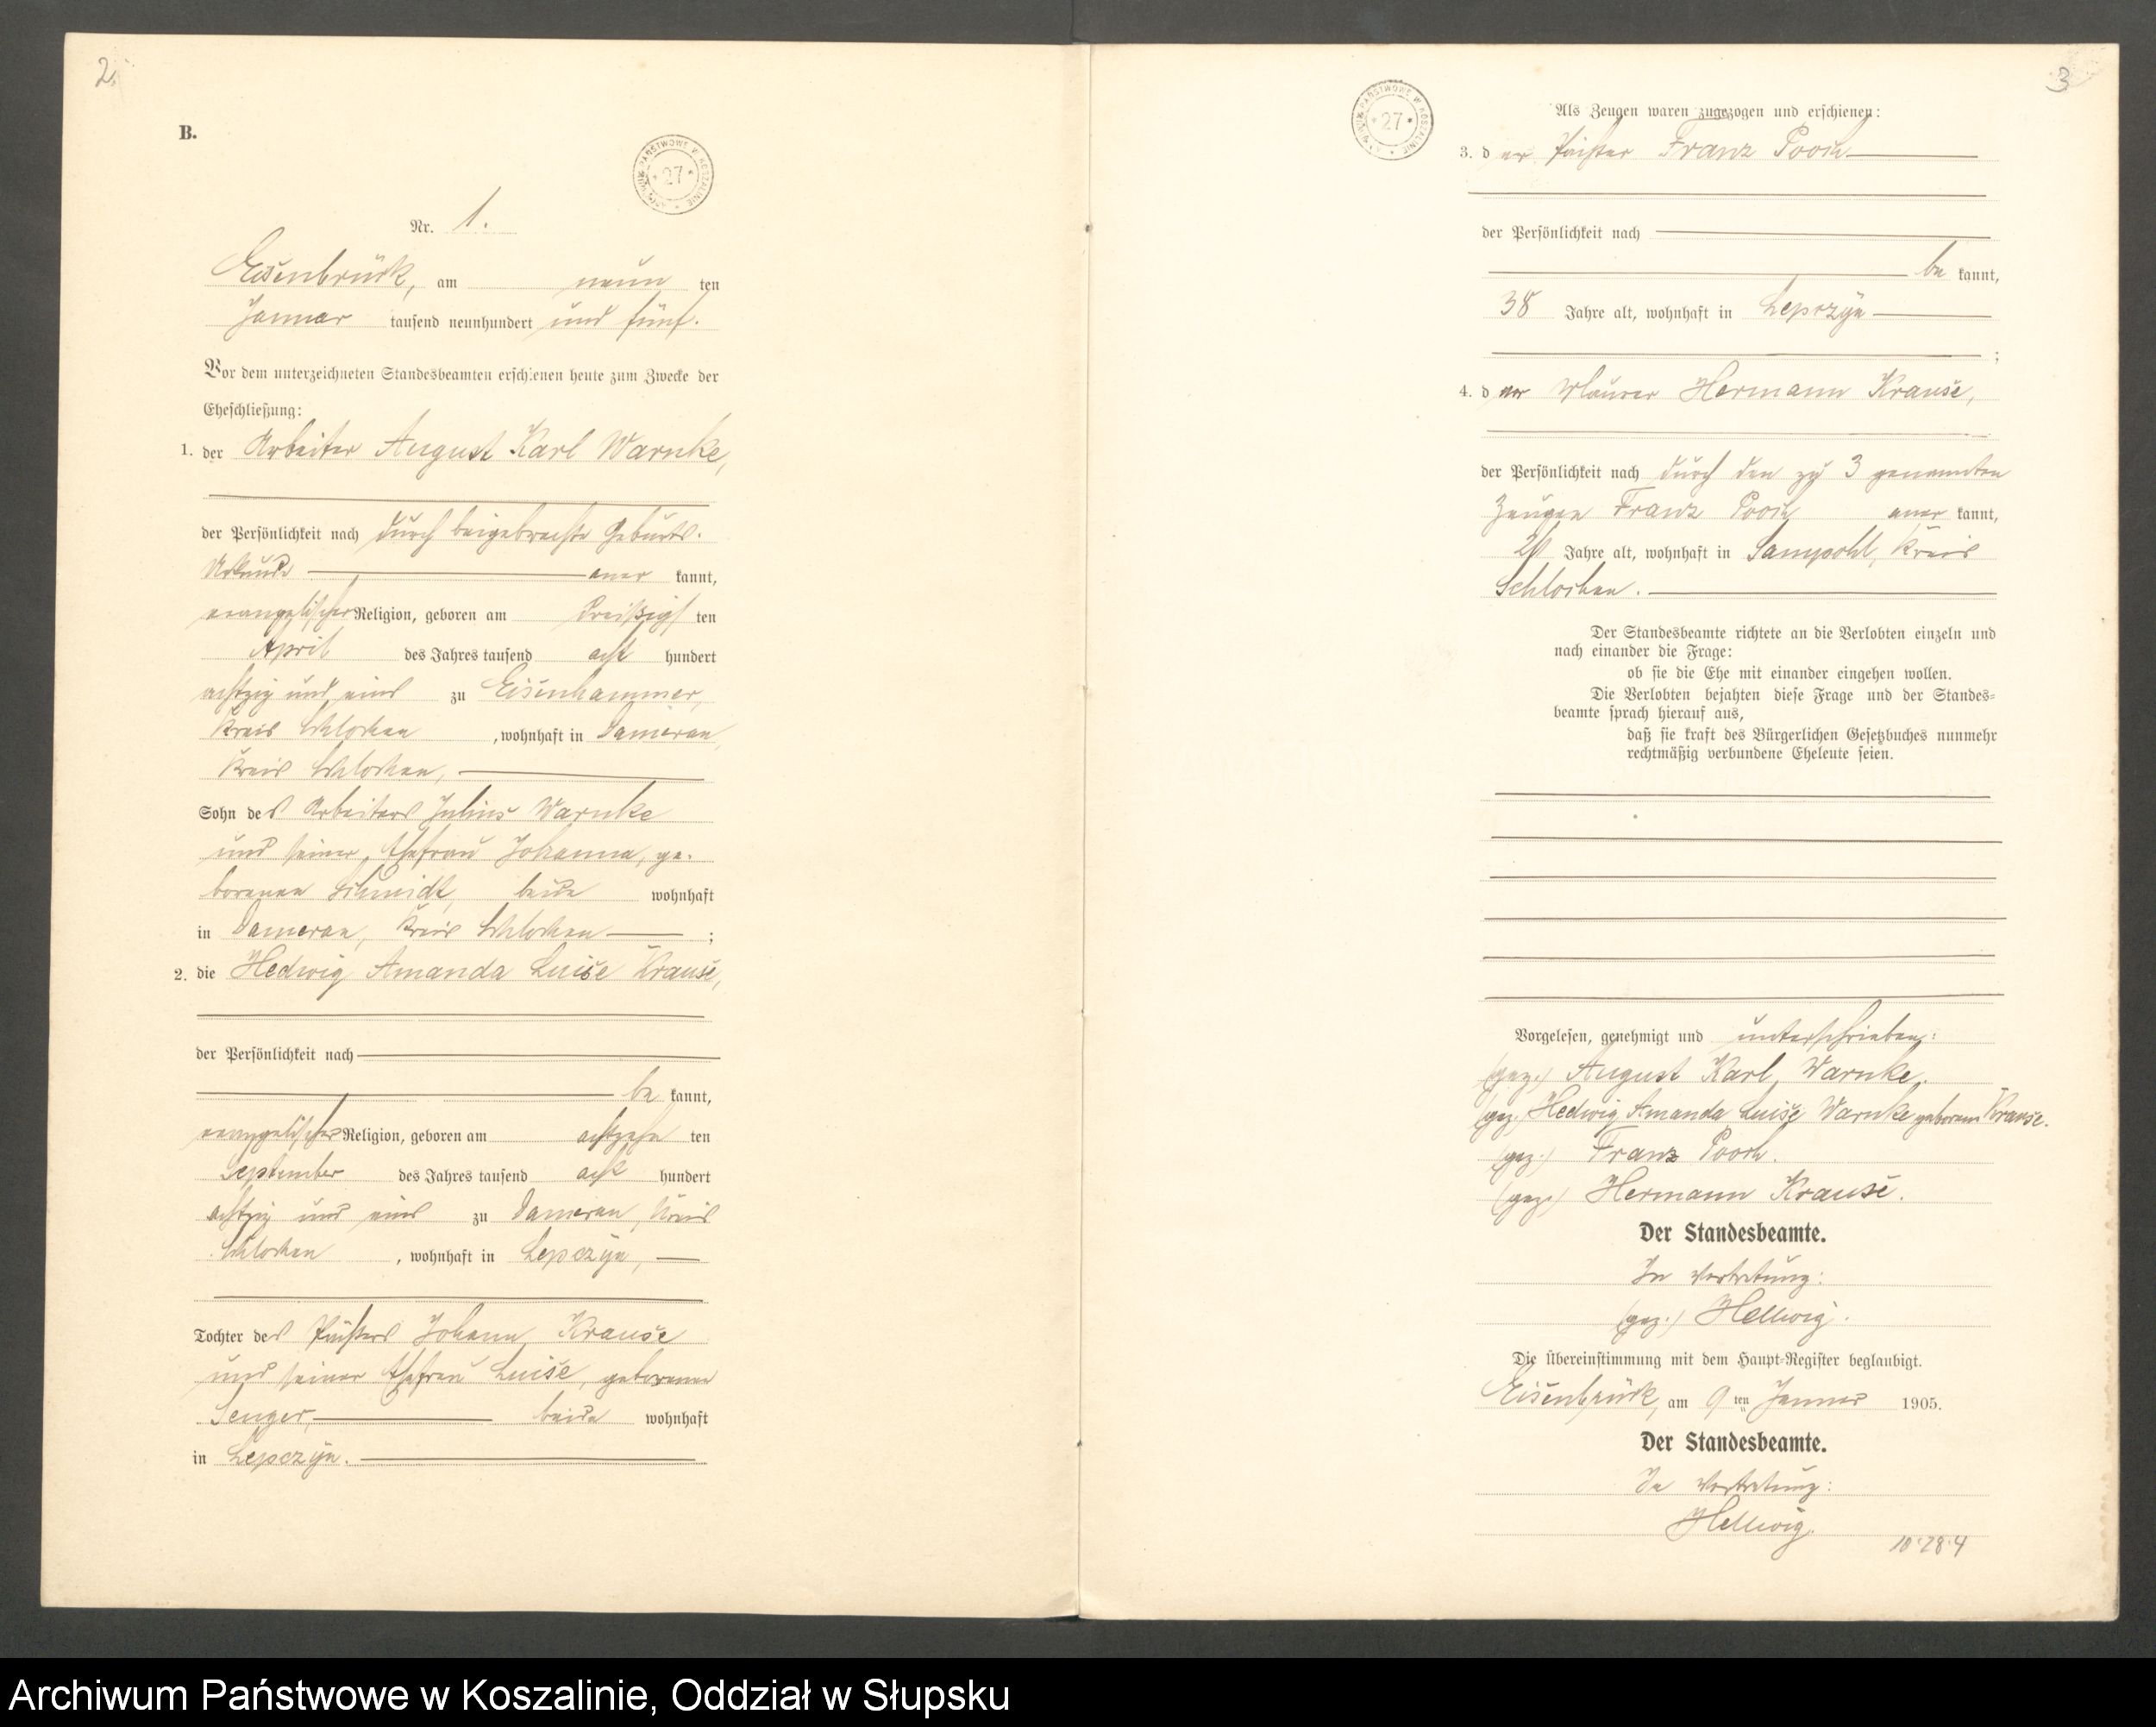 2.
B.
ARCHIWUM PAŃSTWOWE W KOSZALINIE * 27 *
Nr. 1.
Eisenbrück, am neun ten
Januar tausend neunhundert und fünf.
Vor dem unterzeichneten Standesbeamten erschienen heute zum Zwecke der
Eheschließung:
1. der Arbeiter August Karl Warnke,
der Persönlichkeit nach durch beigebrachte Geburts-
Urkunde aner kannt,
evangelischer Religion, geboren am dreißigs ten
April des Jahres tausend acht hundert
achtzig und eins zu Eisenhammer,
Kreis Schlochau, wohnhaft in Damerau,
Kreis Schlochau,
Sohn des Arbeiters Julius Warnke
und seiner Ehefrau Johanna, ge-
borenen Schmidt, beide wohnhaft
in Damerau, Kreis Schlochau ;
2. die Hedwig Amanda Luise Krause,
der Persönlichkeit nach
be kannt,
evangelischer Religion, geboren am achtzehn ten
September des Jahres tausend acht hundert
achtzig und eins zu Damerau, Kreis
Schlochau, wohnhaft in Lepczyn,
Tochter des Pächters Johann Krause
und seiner Ehefrau Luise, geborenen
Senger, beide wohnhaft
in Lepczyn.
3
ARCHIWUM PAŃSTWOWE W KOSZALINIE * 27 *
Als Zeugen waren zugezogen und erschienen:
3. der Pächter Franz Pooch
der Persönlichkeit nach
be kannt,
38 Jahre alt, wohnhaft in Lepczyn
;
4. der Maurer Hermann Krause,
der Persönlichkeit nach durch den zu 3 genannten
Zeugen Franz Pooch aner kannt,
Jahre alt, wohnhaft in Sampohl, Kreis
Schlochau.
Der Standesbeamte richtete an die Verlobten einzeln und
nach einander die Frage:
ob sie die Ehe mit einander eingehen wollen.
Die Verlobten bejahten diese Frage und der Standes-
beamte sprach hierauf aus,
daß sie kraft des Bürgerlichen Gesetzbuches nunmehr
rechtmäßig verbundene Eheleute seien.
Vorgelesen, genehmigt und unterschrieben:
(gez.) August Karl Warnke.
(gez.) Hedwig Amanda Luise Warnke geborene Krause.
(gez.) Franz Pooch.
(gez.) Hermann Krause.
Der Standesbeamte.
In Vertretung:
(gez.) Hellwig.
Die Übereinstimmung mit dem Haupt-Register beglaubigt.
Eisenbrück, am 9 ten Januar 1905.
Der Standesbeamte.
In Vertretung:
Hellwig.
10·28·4
Archiwum Państwowe w Koszalinie, Oddział w Słupsku